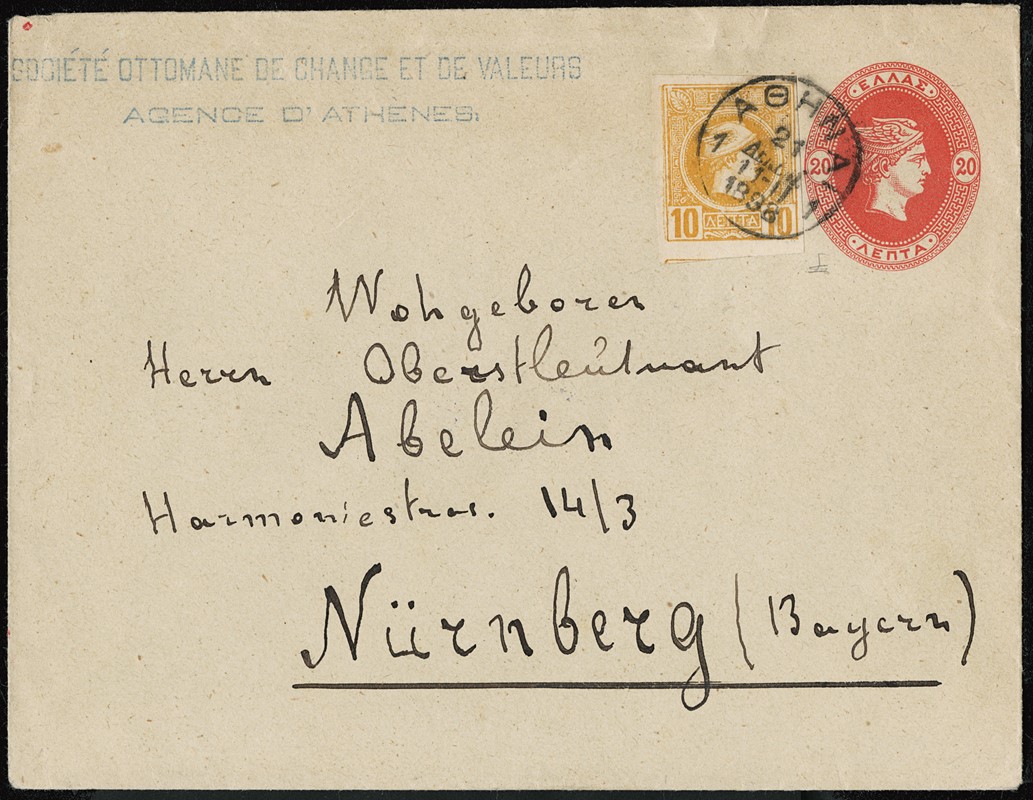 SOCIÉTÉ OTTOMANE DE CHANGE ET DE VALEURS
AGENCE D'ATHENES.
10 ΛΕΠΤΑ 10
ΑΘΗΝΑΙ
1 21 1
11-
189
ΕΛΛΑΣ
20 20
ΛΕΠΤΑ
Wohgeboren
Herrn Oberstleûtnant
Abelein
Harmoniestras. 14/3
Nürnberg (Bayern)